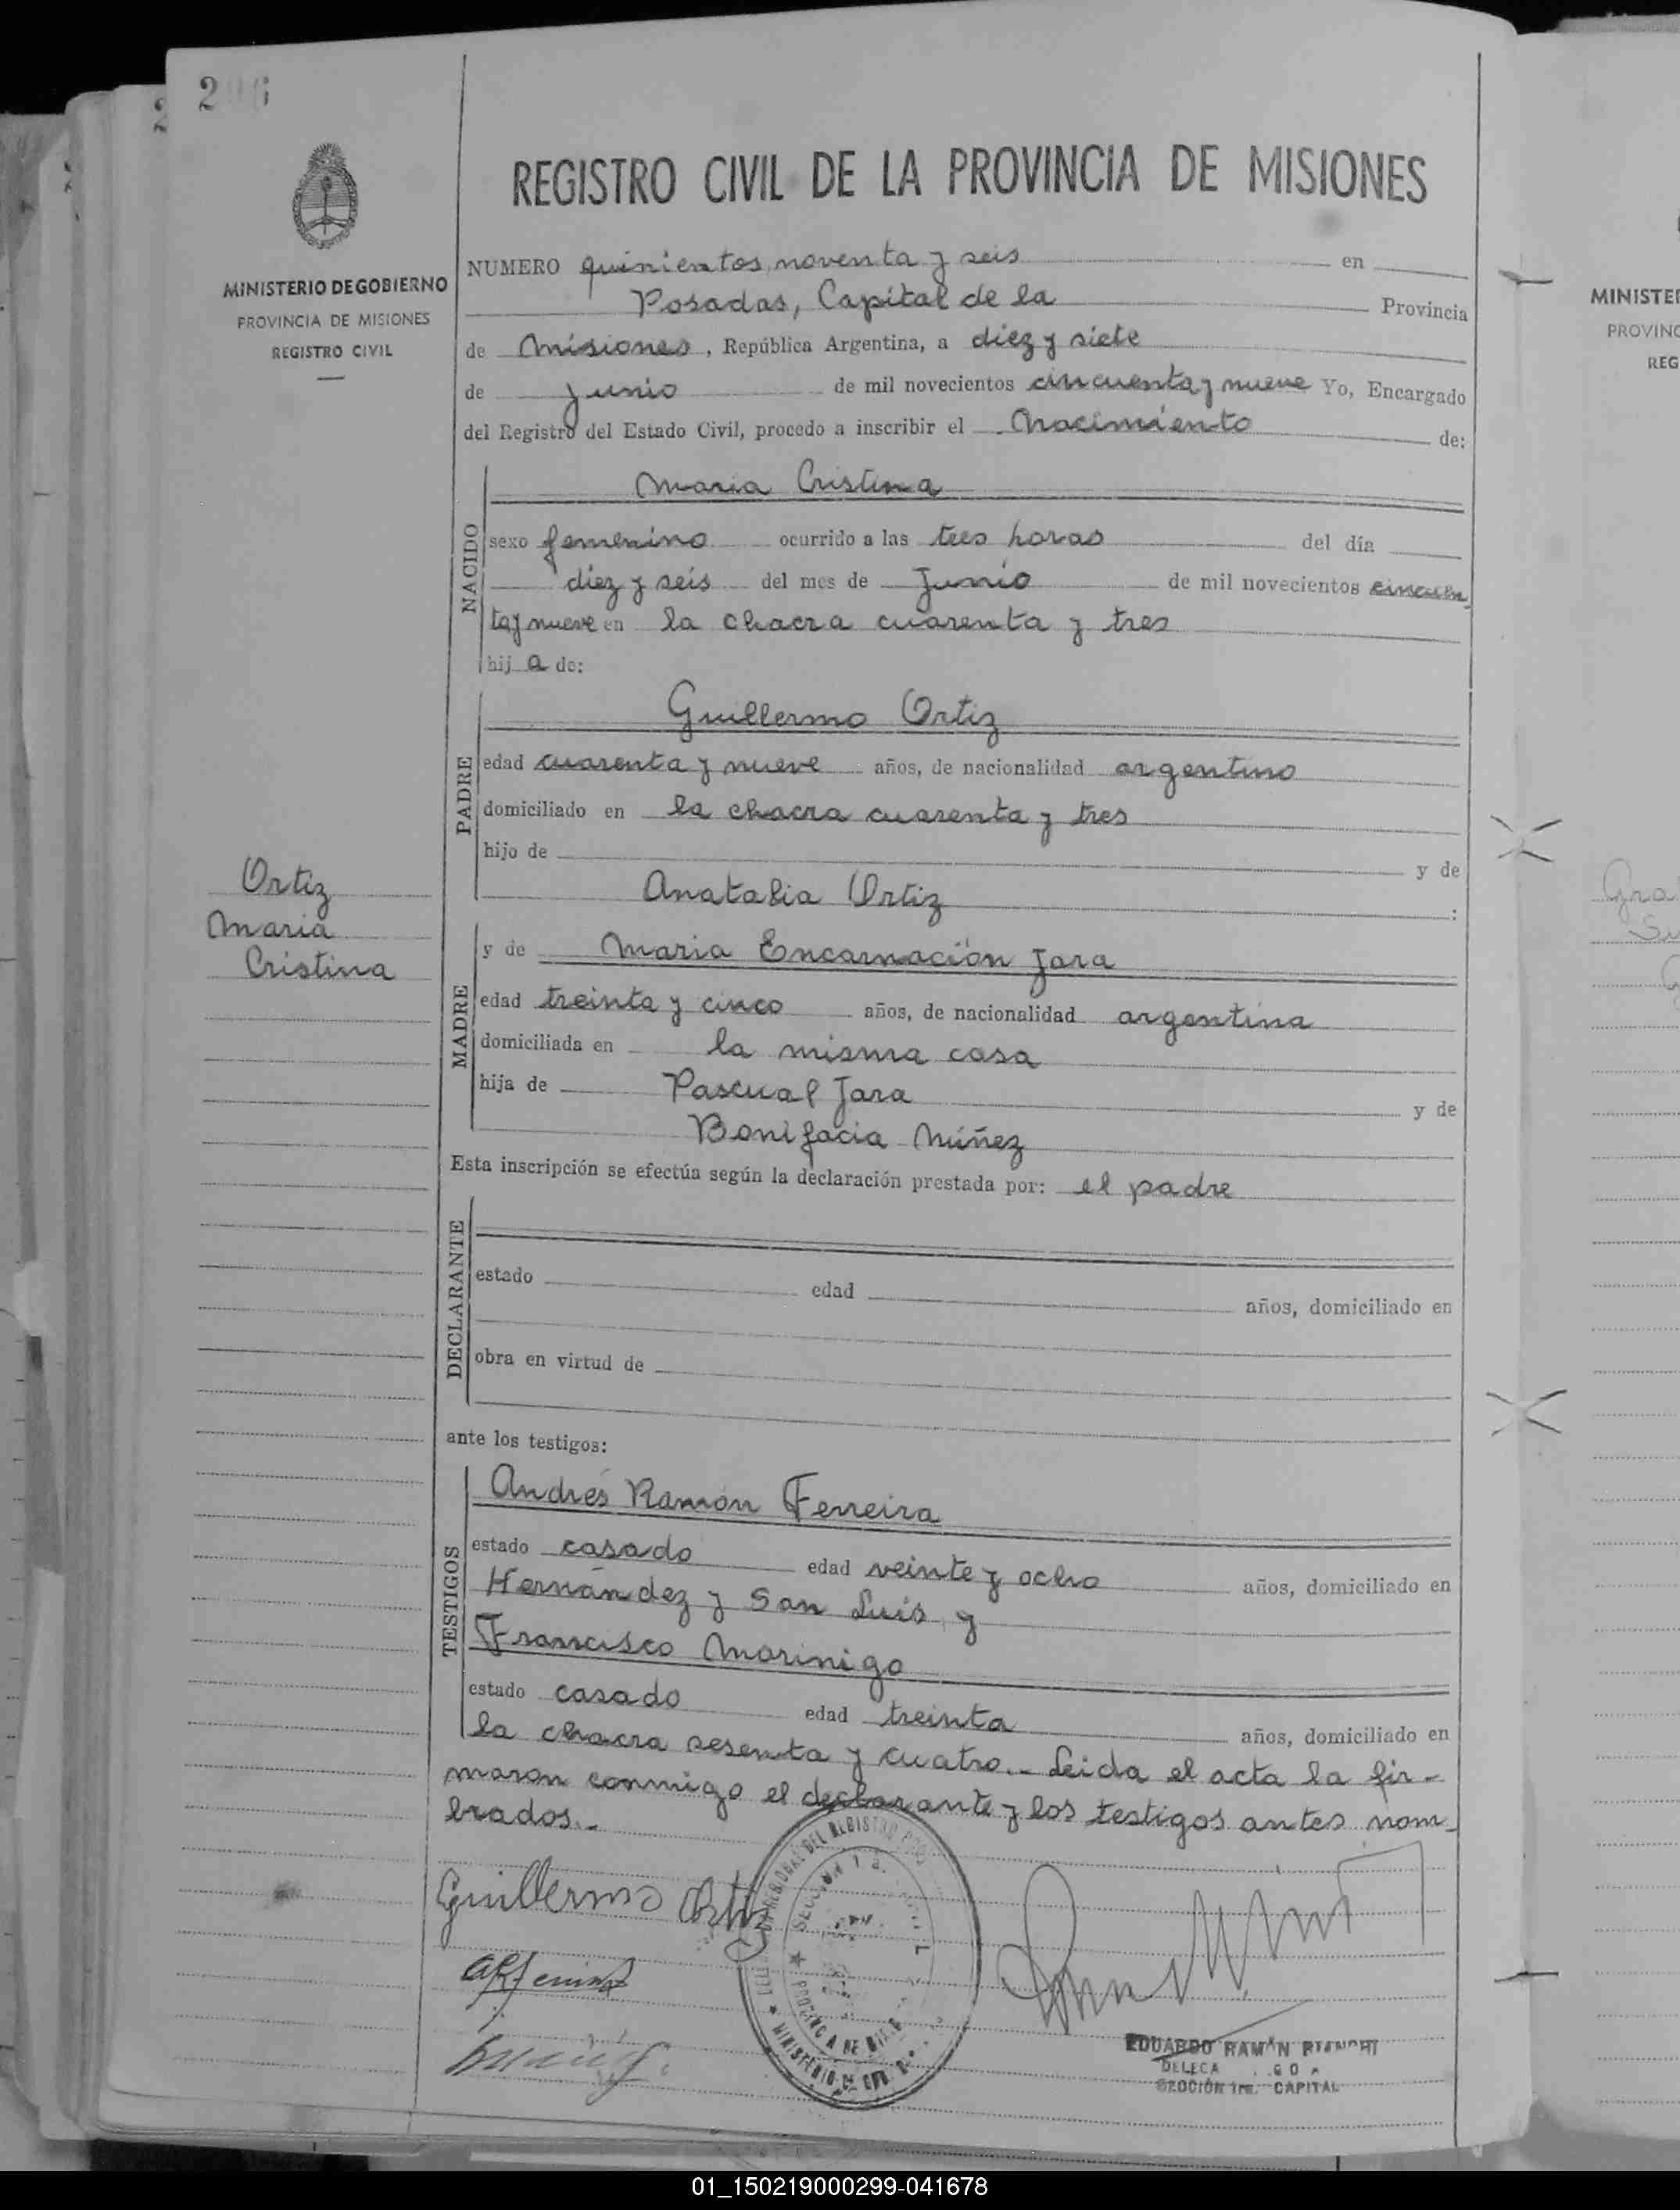 296
MINISTERIO DE GOBIERNO
PROVINCIA DE MISIONES
REGISTRO CIVIL
REGISTRO CIVIL DE LA PROVINCIA DE MISIONES
NUMERO quinientos noventa y seis en
Posadas, Capital de la Provincia
de Misiones, República Argentina, a diez y siete
de Junio de mil novecientos cincuenta y nueve Yo, Encargado
del Registro del Estado Civil, procedo a inscribir el Nacimiento de:
NACIDO
Maria Cristina
sexo femenino ocurrido a las tres horas del día
diez y seis del mes de Junio de mil novecientos cincuen
ta y nueve en la chacra cuarenta y tres
hij a de:
PADRE
Guillermo Ortiz
edad cuarenta y nueve años, de nacionalidad argentino
domiciliado en la chacra cuarenta y tres
hijo de y de
Anatalia Ortiz :
Ortiz
Maria
Cristina
MADRE
y de Maria Encarnación Jara
edad treinta y cinco años, de nacionalidad argentina
domiciliada en la misma casa
hija de Pascual Jara y de
Bonifacia Núñez
Esta inscripción se efectúa según la declaración prestada por: el padre
DECLARANTE
estado edad años, domiciliado en
obra en virtud de
ante los testigos:
TESTIGOS
Andrés Ramón Ferreira
estado casado edad veinte y ocho años, domiciliado en
Hernández y San Luis, y
Francisco Morinigo
estado casado edad treinta años, domiciliado en
la chacra sesenta y cuatro.- Leida el acta la fir-
maron conmigo el declarante y los testigos antes nom-
brados.-
Guillermo Ortiz
EDUARDO RAMÓN BIANCHI
SECCIÓN 1ra. CAPITAL
MINISTE
PROVINC
REG
Gra
01_150219000299-041678